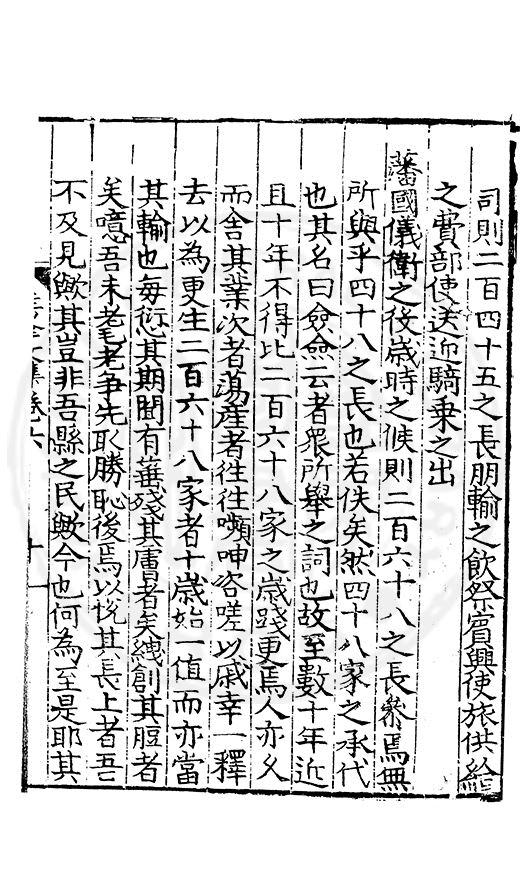 司則二百四十五之長朋輸之飲祭賓興使旅供給
之費部使送迎騎乗之出
藩國儀衛之役歳時之候則二百六十八之長叅焉無
所與乎四十八之長也若佚矣然四十八家之承代
也其名曰僉僉云者衆所舉之詞也故至數十年近
且十年不得比二百六十八家之歳踐更焉人亦乆
而舎其業次者蕩産者徃徃嚬呻咨嗟以戚幸一釋
去以為更生二百六十八家者十歳始一值而亦當
其輸也毎愆其期間有箠殘其膚者矣綫創其脰者
矣噫吾未老耄爭先取勝恥後焉以恱其長上者吾
不及見歟其豈非吾縣之民歟今也何為至是耶其
集卷六
十一